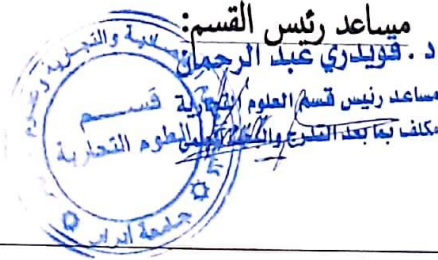 مساعد رئيس القسم:
د. قويدري عبد الرحمان
مساعد رئيس قسم العلوم التجارية
مكلف بما بعد التدرج والبحث العلمي
قسم
العلوم التجارية
جامعة أدرار